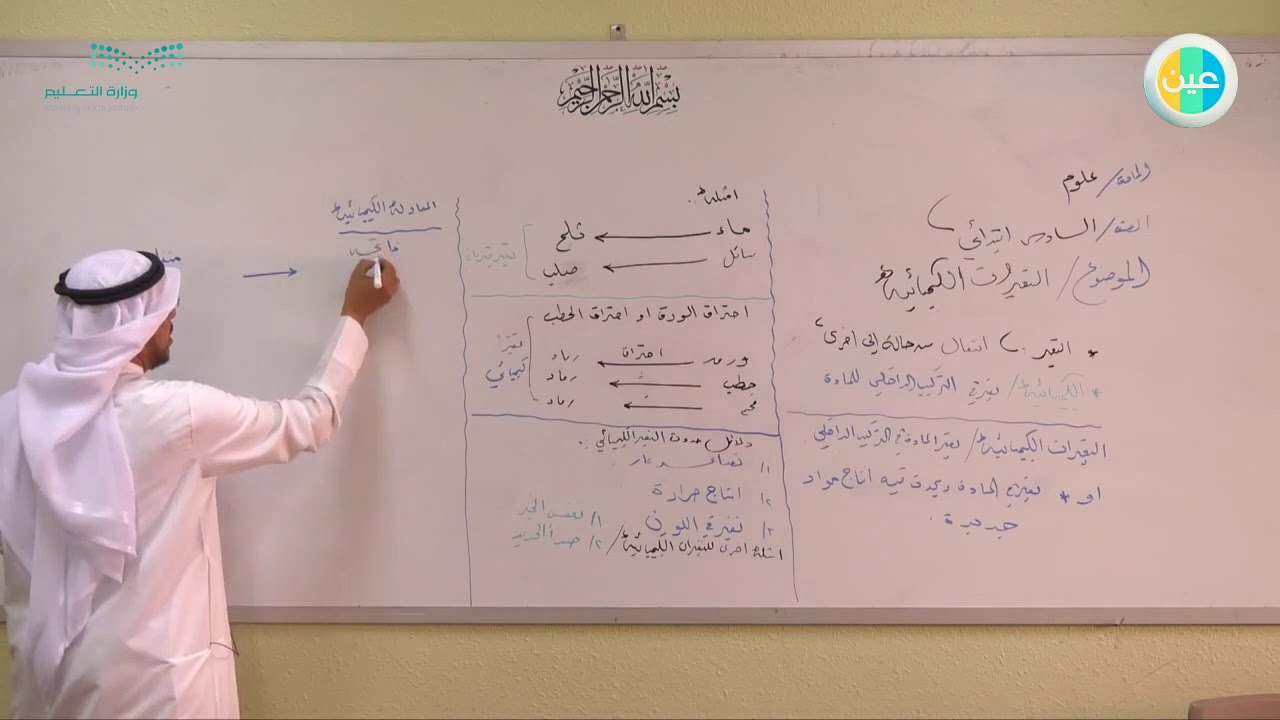 وزارة التعليم
Ministry of Education
عين
بسم الله الرحمن الرحيم
المادة/ علوم
الصف/ السادس ابتدائي
الموضوع/ التغيرات الكيميائية
* التغير: انتقال من حالة إلى أخرى
* الكيميائية/ تغير في التركيب الداخلي للمادة
التغيرات الكيميائية/ تغير المادة في التركيب الداخلي
او * تغير في المادة ويحدث فيه انتاج مواد
جديدة.
امثلة:
ماء ← ثلج
سائل ← صلب
احتراق الورقة او احتراق الحطب
احتراق ← رماد
حطب ← رماد
فحم ← رماد
تغير
كيميائي
دلائل حدوث التغير الكيميائي.
١/ تصاعد غاز
٢/ انتاج حرارة
٣/ تغير في اللون
امثلة اخرى للتغيرات الكيميائية/
١/ تعفن الخبز
٢/ صدأ الحديد
المعادلة الكيميائية
→